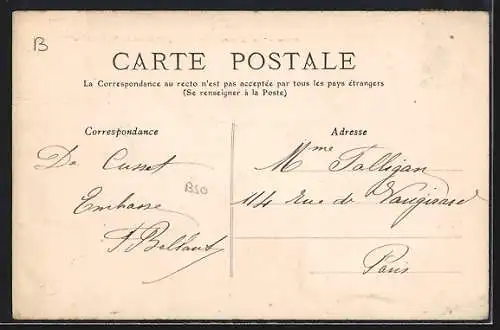 B
CARTE POSTALE
La Correspondance au recto n'est pas acceptée par tous les pays étrangers
(Se renseigner à la Poste)
Correspondance
De Cusset
B50
Embasse
Adresse
Mme Talligan
114 Rue de Vaugirard
Paris